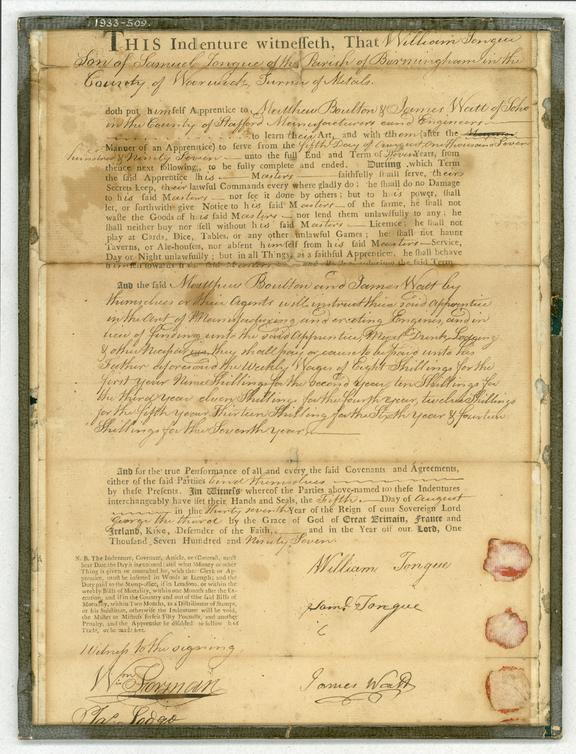 1933-509.
THIS Indenture witnesseth, That William Tongue
Son of Samuel Tongue of the Parish of Birmingham in the
County of Warwick, Turner of Metals.
doth put himself Apprentice to Matthew Boulton & James Watt of Soho
in the County of Stafford Manufacturers and Engineers
to learn their Art, and with them (after the
Manner of an Apprentice) to serve from the fifth Day of August One thousand Seven
hundred & Ninety Seven unto the full End and Term of Seven Years, from
thence next following, to be fully complete and ended. During which Term
the said Apprentice his Masters faithfully shall serve, their
Secrets keep, their lawful Commands every where gladly do; he shall do no Damage
to his said Masters nor see it done by others; but to his power, shall
let, or forthwith give Notice to his said Masters of the same, he shall not
waste the Goods of his said Masters nor lend them unlawfully to any; he
shall neither buy nor sell without his said Masters Licence; he shall not
play at Cards, Dice, Tables, or any other unlawful Games; he shall not haunt
Taverns, or Ale-houses, nor absent himself from his said Masters Service,
Day or Night unlawfully; but in all Things, as a faithful Apprentice, he shall behave
himself towards his said Masters during the said Term
And the said Matthew Boulton and James Watt by
themselves or their Agents will instruct their said Apprentice
in the Art of Manufacturing and erecting Engines, and in
lieu of finding unto the said Apprentice, Meat Drink Lodging
& other Necessaries, they shall pay or cause to be paid unto his
Father aforesaid the Weekly Wages of Eight Shillings for the
first year Nine Shillings for the Second Year, ten Shillings for
the third year eleven Shillings for the fourth year, twelve Shillings
for the fifth year Thirteen Shilling for the Sixth Year & fourteen
Shillings for the Seventh year
And for the true Performance of all and every the said Covenants and Agreements,
either of the said Parties bind themselves
by these Presents. In Witness whereof the Parties above-named to these Indentures
interchangeably have set their Hands and Seals, the Fifth Day of August
in the thirty seventh Year of the Reign of our Sovereign Lord
George the third by the Grace of God of Great Britain, France and
Ireland, King, Defender of the Faith, and in the Year of our Lord, One
Thousand, Seven Hundred and Ninety Seven
N. B. The Indenture, Covenant, Article, or Contract, must
bear Date the Day it is executed; and what Money or other
Thing is given or contracted for, with the Clerk or Ap-
prentice, must be inserted in Words at Length; and the
Duty paid to the Stamp-office, if in London, or within the
weekly Bills of Mortality, within one Month after the Ex-
ecution; and if in the Country and out of the said Bills of
Mortality, within two Months, to a Distributor of Stamps,
or his Substitute, otherwise the Indenture will be void,
the Master or Mistress forfeit Fifty Pounds, and another
Penalty, and the Apprentice be disabled to follow his
Trade, or be made free.
William Tongue
Saml Tongue
Witness to the signing
Wm Forman
James Watt